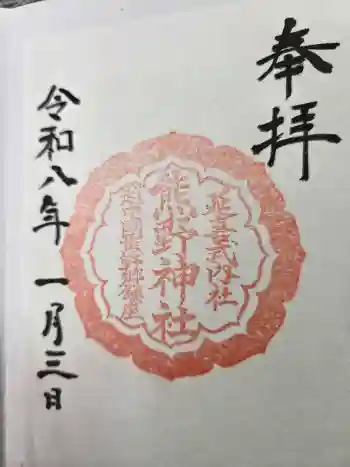 奉拝
延喜式内社
熊野神社
令和八年一月三日